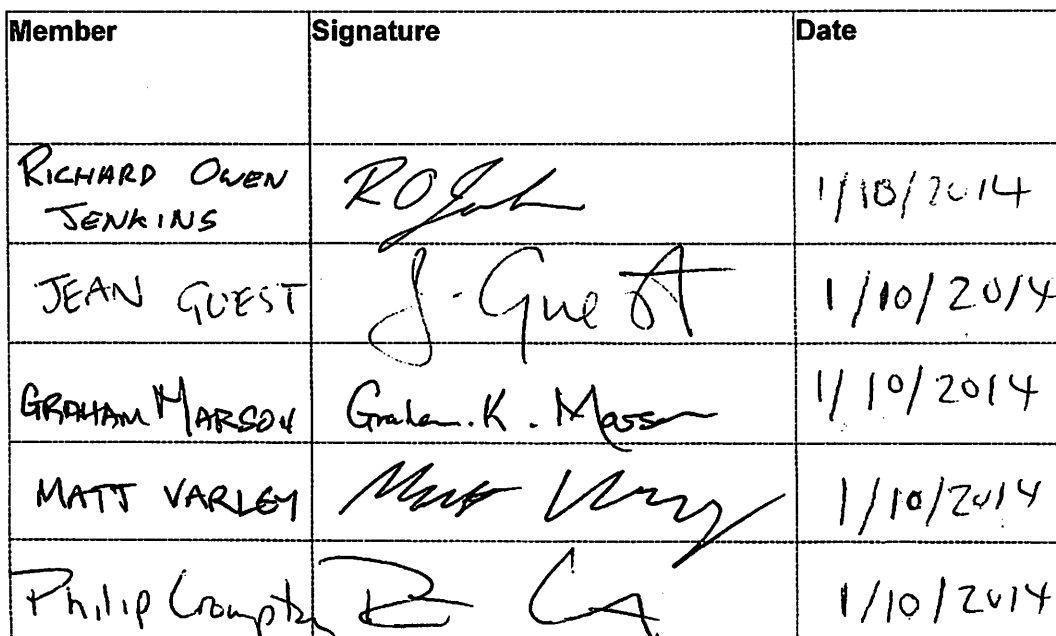 Member Signature Date
RICHARD OWEN
JENKINS
1/10/2014
JEAN GUEST J. Guest 1/10/2014
GRAHAM MARSON Graham. K. Marson 1/10/2014
MATT VARLEY 1/10/2014
Philip Crompton 1/10/2014